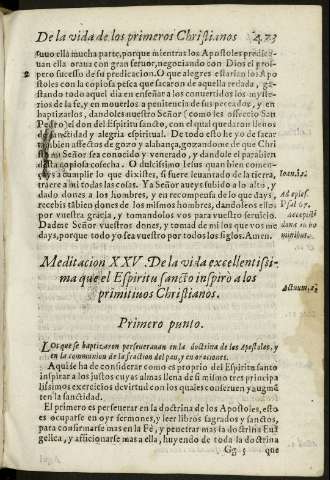 De la vida de los primeros Christianos 473
tuuo ella mucha parte, porque mientras los Apostoles predica-
uan ella oraua con gran feruor, negociando con Dios el pros-
pero sucesso de su predicacion. O que alegres estarian los Apo
2 stoles con la copiosa pesca que sacaron de aquella redada, ga-
stando todo aquel dia en enseñar a los conuertidos los myste-
rios de la fe, y en mouerlos a penitencia de sus peccados, y en
baptizarlos, dandoles nuestro Señor (como les offrecio San
Pedro) el don del Espiritu sancto, con el qual quedaron llenos
de sanctidad y alegria espiritual. De todo esto he yo de sacar
tambien affectos de gozo y alabança, gozandome de que Chri
sto mi Señor sea conocido y venerado, y dandole el parabien
desta copiosa cosecha. O dulcissimo Iesus quan bien comen-
çays a cumplir lo que dixistes, si fuere leuantado de la tierra,
Ioan. 12.
traere a mi todas las cosas. Ya Señor aueys subido a lo alto, y
dado dones a los hombres, y en recompensa de lo que days,
Ad ephes.
recebis tãbien dones de los mismos hombres, dandoles ellos
Psal 67.
por vuestra gracia, y tomandolos vos para vuestro seruicio.
Dadme Señor vuestros dones, y tomad de mi los que vos me
days, porque todo yo sea vuestro por todos los siglos. Amen.
Meditacion XXV. De la vida excellentissi-
ma que el Espiritu sancto inspirò a los
primitiuos Christianos.
Actuum. 2
Primero punto.
Los que se baptizaron perseuerauan en la doctrina de los Apostoles, y
en la communion de la fraction del pan, y en oraciones.
Aqui se ha de considerar como es proprio del Espiritu santo
inspirar a los justos cuyas almas llena de si mismo tres principa
lissimos exercicios de virtud con los quales conseruen y augmẽ
ten la sanctidad.
El primero es perseuerar en la doctrina de los Apostoles, esto
es ocuparse en oyr sermones, y leer libros sagrados y sanctos,
para confirmarse mas en la Fè, y penetrar mas la doctrina Euã
gelica, y afficionarse mas a ella, huyendo de toda la doctrina
Gg 5 que